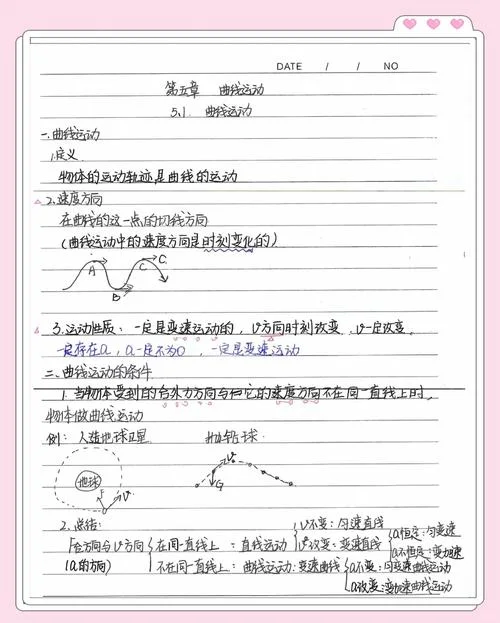 DATE / / NO
第五章 曲线运动
5.1. 曲线运动
一.曲线运动
1.定义
物体的运动轨迹是曲线的运动
2.速度方向
在曲线的这一点的切线方向
(曲线运动中的速度方向是时刻变化的)
A B C C
3.运动性质：一定是变速运动的，v方向时刻改变，v一定改变。
一定存在a，a一定不为0，一定是变速运动
二.曲线运动的条件
1.当物体受到的合外力方向与它的速度方向不在同一直线上时，
物体做曲线运动
例：人造地球卫星 抛铅球
地球 F v
v G
2.总结：
F合方向与v方向 (a的方向)
在同一直线上：直线运动
v不变：匀速直线
v改变：变速直线
a恒定：匀变速
a不恒定：变加速
不在同一直线上：曲线运动：变速曲线
a不变：匀变速曲线运动
a改变：变加速曲线运动